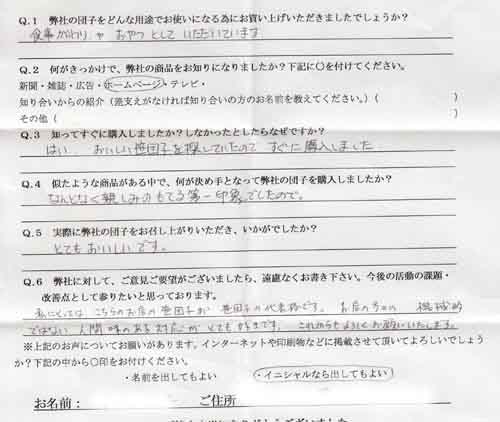 Q.1 弊社の団子をどんな用途でお使いになる為にお買い上げいただきましたでしょうか?
食事がわりや おやつとして いただいています
Q.2 何がきっかけで、弊社の商品をお知りになりましたか?下記に○を付けてください。
新聞・雑誌・広告・ホームページ・テレビ・
知り合いからの紹介(差支えがなければ知り合いの方のお名前を教えてください。)( )
その他( )
Q.3 知ってすぐに購入しましたか?しなかったとしたらなぜですか?
はい、おいしい笹団子を探していたので すぐに購入しました
Q.4 似たような商品がある中で、何が決め手となって弊社の団子を購入しましたか?
なんとなく親しみのもてる第一印象でしたので。
Q.5 実際に弊社の団子をお召し上がりいただき、いかがでしたか?
とてもおいしいです。
Q.6 弊社に対して、ご意見ご要望がございましたら、遠慮なくお書き下さい。今後の活動の課題・
改善点として参りたいと思っております。
私にとっては、こちらのお店の笹団子が 笹団子の代表格です。お店の方の 機械的
ではない 人間味のある対応が とても好きです。これからもよろしくお願いいたします。
※上記のお声についてお願いがあります。インターネットや印刷物などに掲載させて頂いてよろしいでしょう
か?下記の中から○印をお付けください。
・名前を出してもよい ・イニシャルなら出してもよい
お名前: ご住所